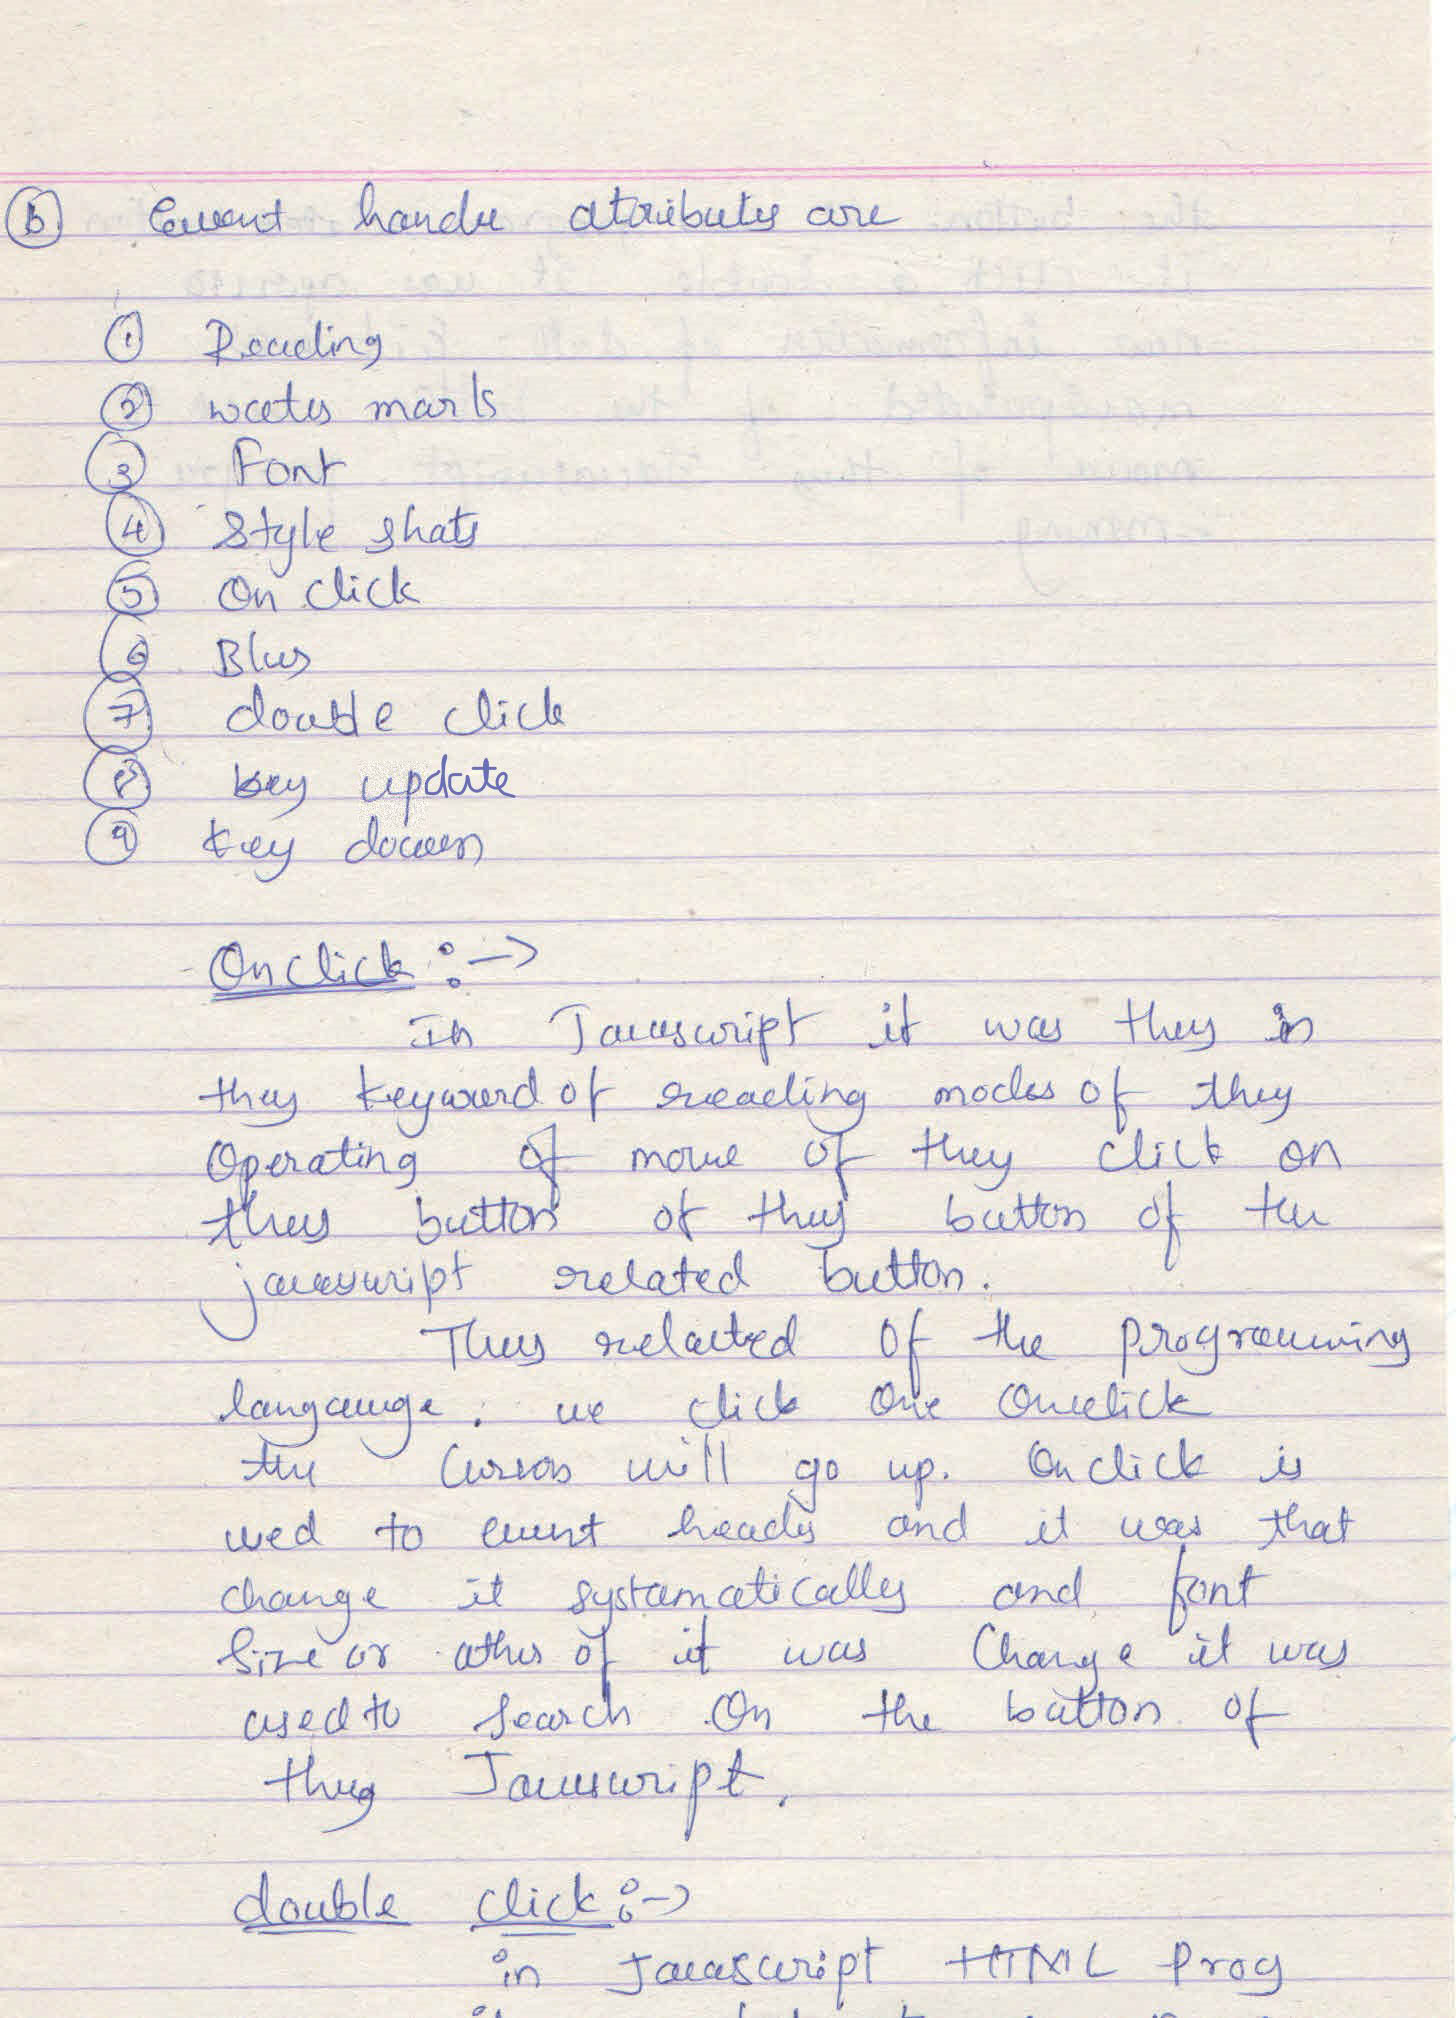 (b) Event handle atributes are
① Reading
② water marks
③ Font
④ Style shats
⑤ On click
⑥ Blur
⑦ double click
⑧ key update
⑨ key down
Onclick :->
In Javascript it was they in
they keyword of reading modes of they
Operating of move of they click on
they button of they button of the
javascript related button.
Thus related of the programming
langauge. we click One Onclick
the Cursor will go up. Onclick is
used to event heads and it was that
change it systamatically and font
Size or other of it was Change it was
used to Search On the button of
they Javascript.
double click :->
in Javascript HTML Prog